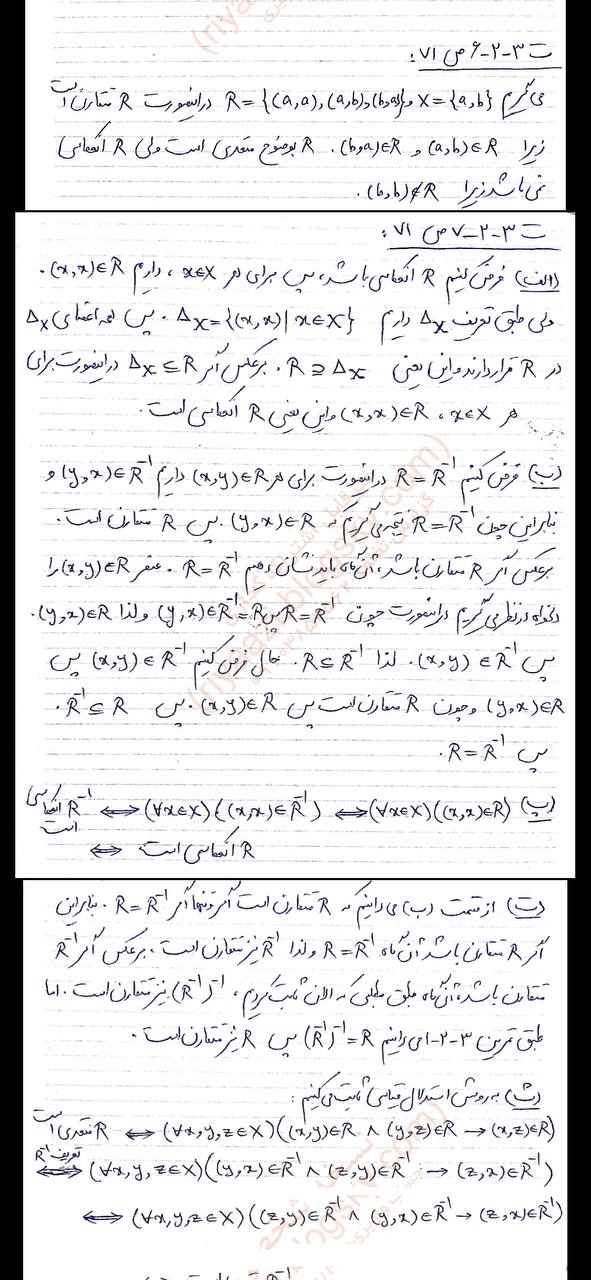 ت ۳-۲-۶ ص ۷۱ :
می‌گیریم X = {a,b} و R = {(a,a),(a,b),(b,a)} در اینصورت R متقارن است
زیرا (a,b)∈R و (b,a)∈R . R بوضوح متعدی است ولی R انعکاسی
نمی باشد زیرا (b,b)∉R .
ت ۳-۲-۷ ص ۷۱ :
(الف) فرض کنیم R انعکاسی باشد، پس برای هر x∈X ، داریم (x,x)∈R .
ولی طبق تعریف Δ_X داریم Δ_X = {(x,x) | x∈X} . پس همه اعضای Δ_X
در R قرار دارند و این یعنی R ⊇ Δ_X . برعکس اگر Δ_X ⊆ R در اینصورت برای
هر x∈X ، (x,x)∈R و این یعنی R انعکاسی است .
(ب) فرض کنیم R = R⁻¹ در اینصورت برای هر (x,y)∈R داریم (y,x)∈R⁻¹ و
بنابراین چون R = R⁻¹ نتیجه می گیریم که (y,x)∈R . پس R متقارن است .
برعکس اگر R متقارن باشد، آن‌گاه باید نشان دهیم R = R⁻¹ . عنصر (x,y)∈R را
دلخواه در نظر می گیریم در اینصورت چون R = R⁻¹ پس (y,x)∈R⁻¹=R ولذا (y,x)∈R .
پس (x,y) ∈ R⁻¹ . لذا R ⊆ R⁻¹ . حال فرض کنیم (x,y) ∈ R⁻¹ پس
(y,x)∈R و چون R متقارن است پس (x,y)∈R . پس R⁻¹ ⊆ R .
پس R = R⁻¹ .
(پ) R⁻¹ انعکاسی است ⟺ (∀x∈X)((x,x)∈R⁻¹) ⟺ (∀x∈X)((x,x)∈R)
⟺ R انعکاسی است
(ت) از قسمت (ب) می دانیم که R متقارن است اگر و تنها اگر R = R⁻¹ . بنابراین
اگر R متقارن باشد آن‌گاه R = R⁻¹ ولذا R⁻¹ نیز متقارن است . برعکس اگر R⁻¹
متقارن باشد، آن‌گاه طبق مطلبی که الان ثابت کردیم ، (R⁻¹)⁻¹ نیز متقارن است . اما
طبق تمرین ۳-۲-۱ می دانیم (R⁻¹)⁻¹ = R پس R نیز متقارن است .
(ث) به روش استدلال قیاسی ثابت می کنیم :
R متعدی است ⟺ (∀x,y,z∈X)((x,y)∈R ∧ (y,z)∈R → (x,z)∈R)
تعریف R⁻¹ ⟺ (∀x,y,z∈X)((y,x)∈R⁻¹ ∧ (z,y)∈R⁻¹ → (z,x)∈R⁻¹)
⟺ (∀x,y,z∈X)((z,y)∈R⁻¹ ∧ (y,x)∈R⁻¹ → (z,x)∈R⁻¹)